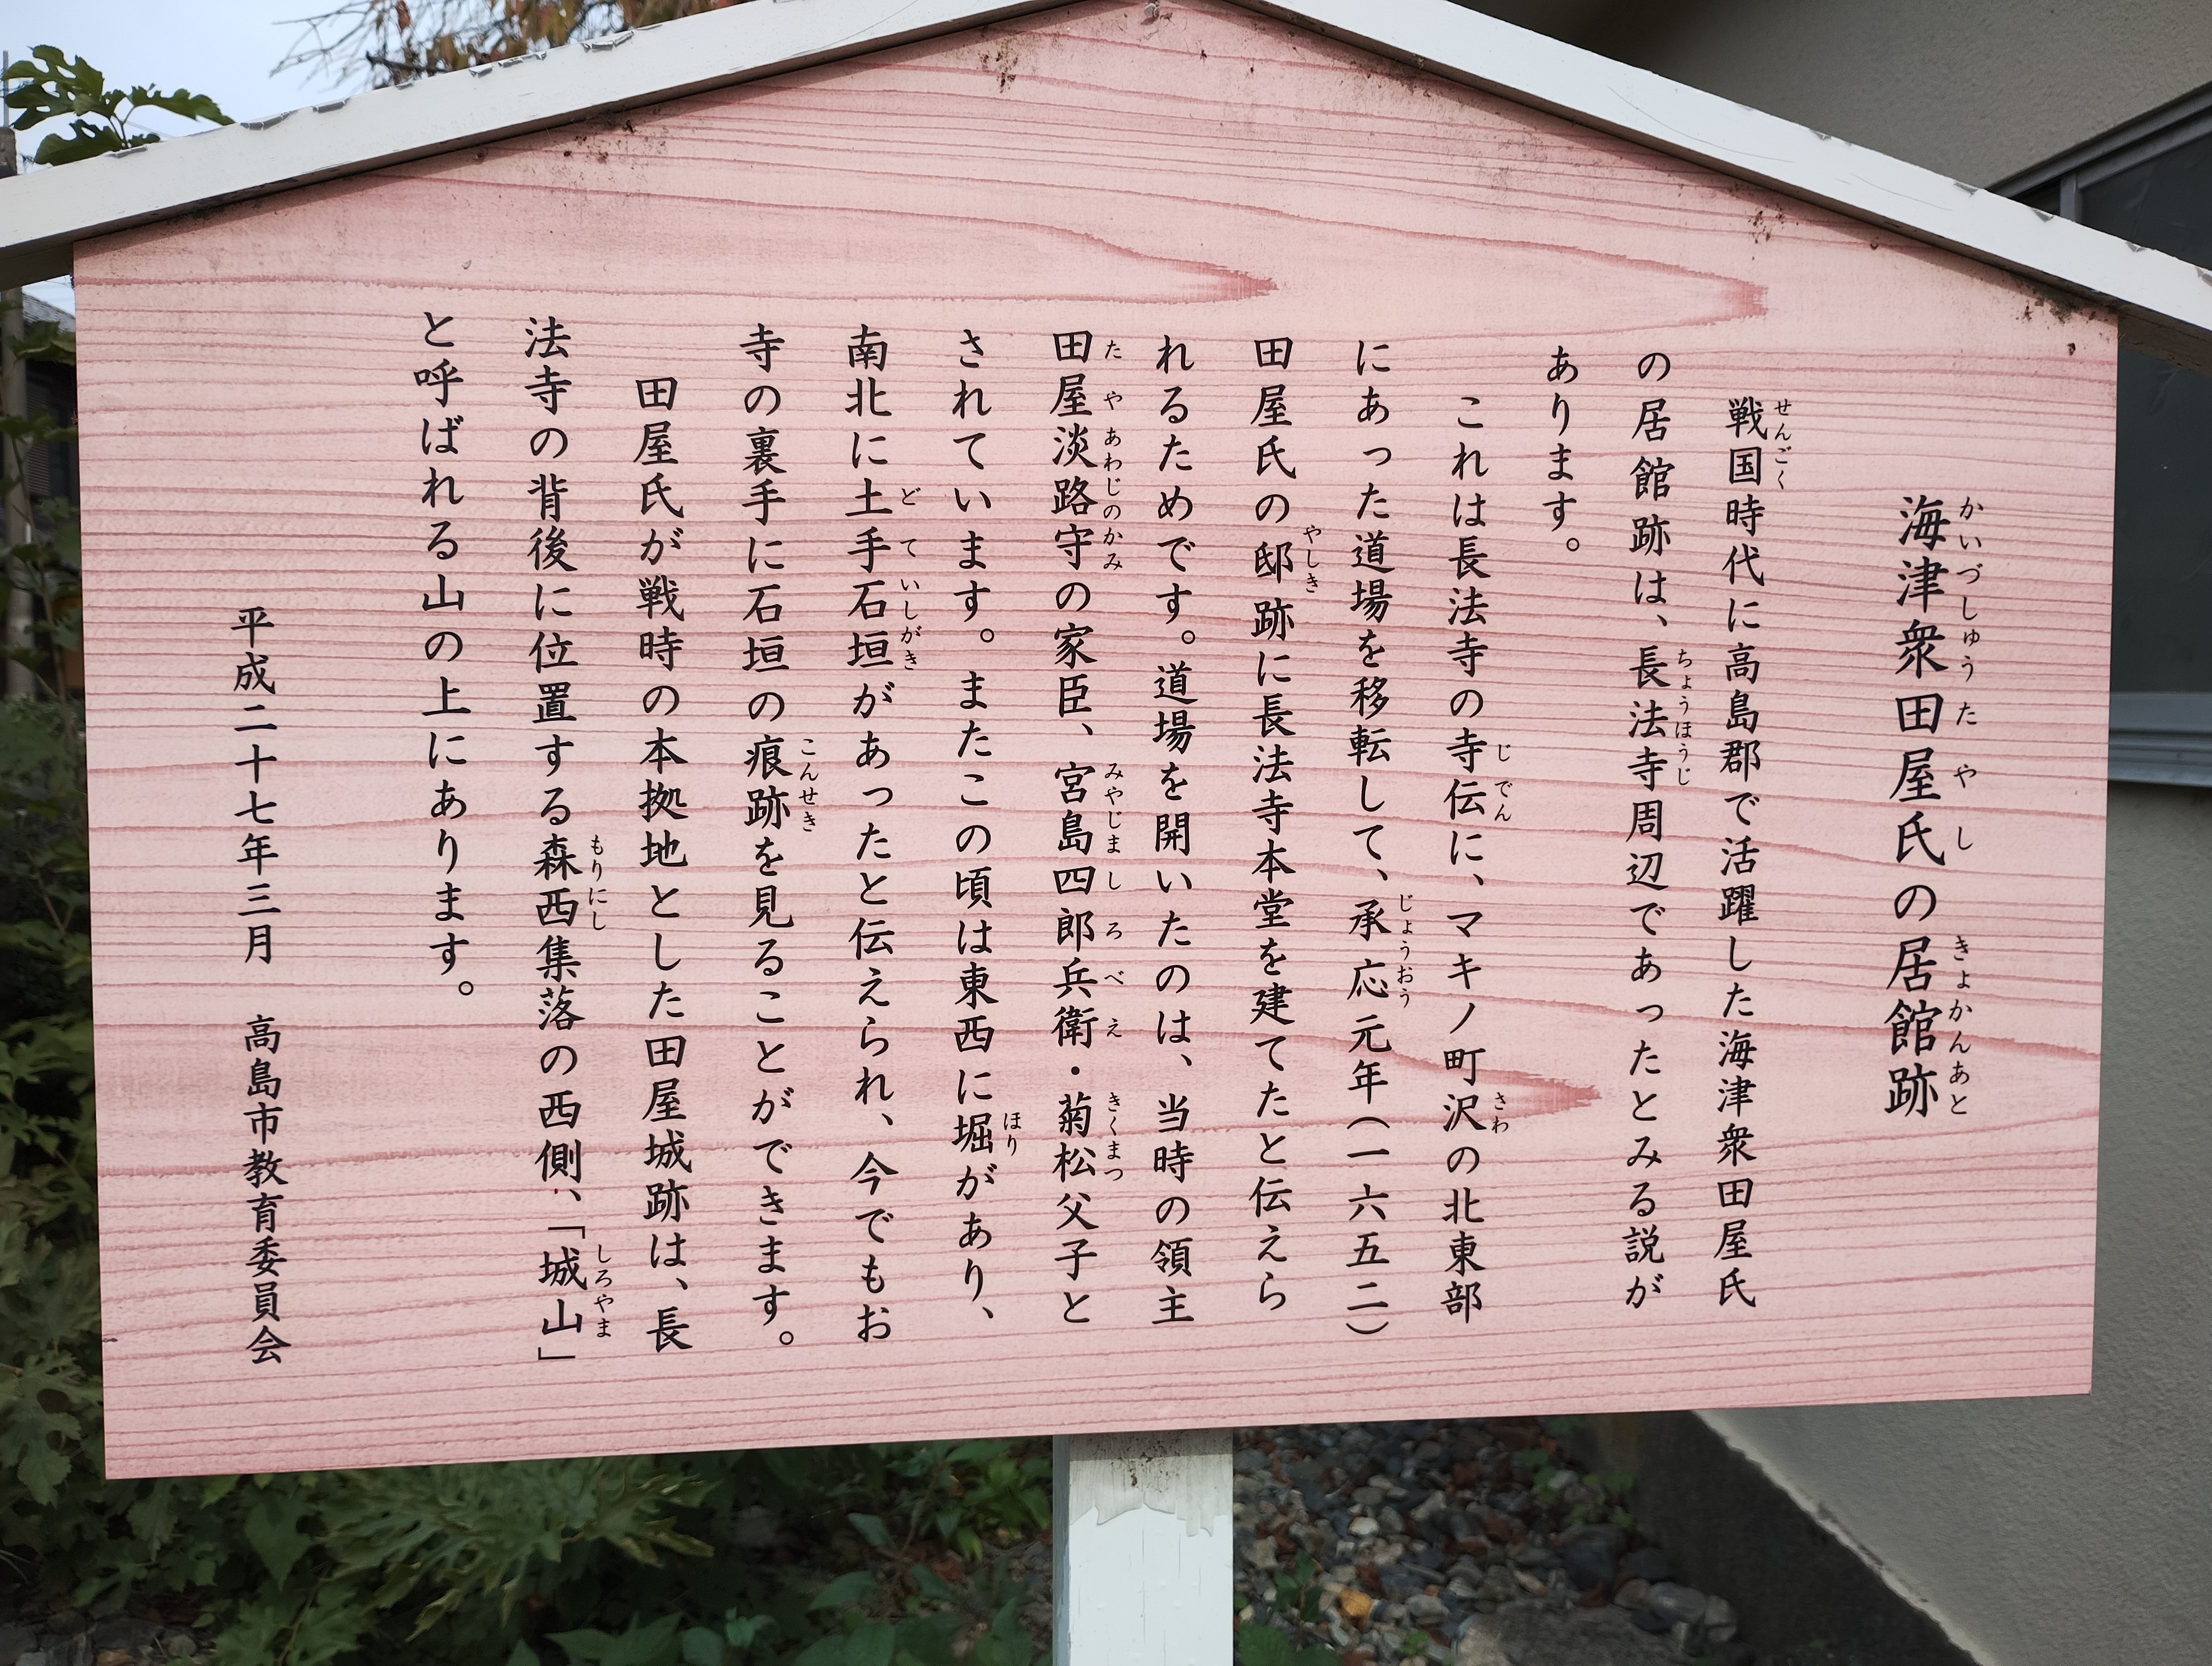 海津衆田屋氏の居館跡
戦国時代に高島郡で活躍した海津衆田屋氏
の居館跡は、長法寺周辺であったとみる説が
あります。
これは長法寺の寺伝に、マキノ町沢の北東部
にあった道場を移転して、承応元年（一六五二）
田屋氏の邸跡に長法寺本堂を建てたと伝えら
れるためです。道場を開いたのは、当時の領主
田屋淡路守の家臣、宮島四郎兵衛・菊松父子と
されています。またこの頃は東西に堀があり、
南北に土手石垣があったと伝えられ、今でもお
寺の裏手に石垣の痕跡を見ることができます。
田屋氏が戦時の本拠地とした田屋城跡は、長
法寺の背後に位置する森西集落の西側、「城山」
と呼ばれる山の上にあります。
平成二十七年三月　高島市教育委員会